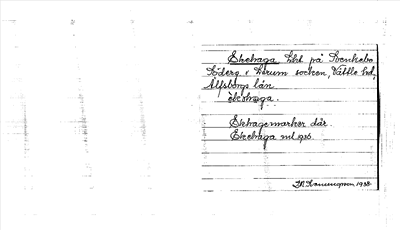 Ekehaga lht på Svenkebo
Söderg i Lerum socken, Vättle hd,
Älfsborgs län.
ekehaga.
Ekhagemarker där.
Ekehaga ml gds.
1938